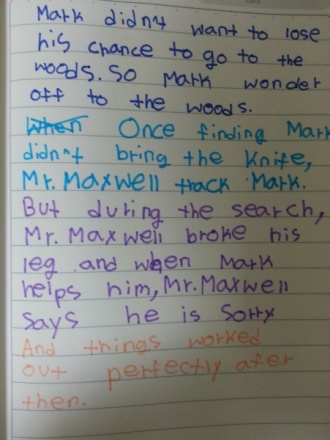 Mark didn't want to lose
his chance to go to the
woods. So Mark wonder
off to the woods.
When Once finding Mark
didn't bring the Knife,
Mr. Maxwell track Mark.
But during the search,
Mr. Maxwell broke his
leg and when Mark
helps him, Mr. Maxwell
says he is Sorry
And things worked
out perfectly after
then.